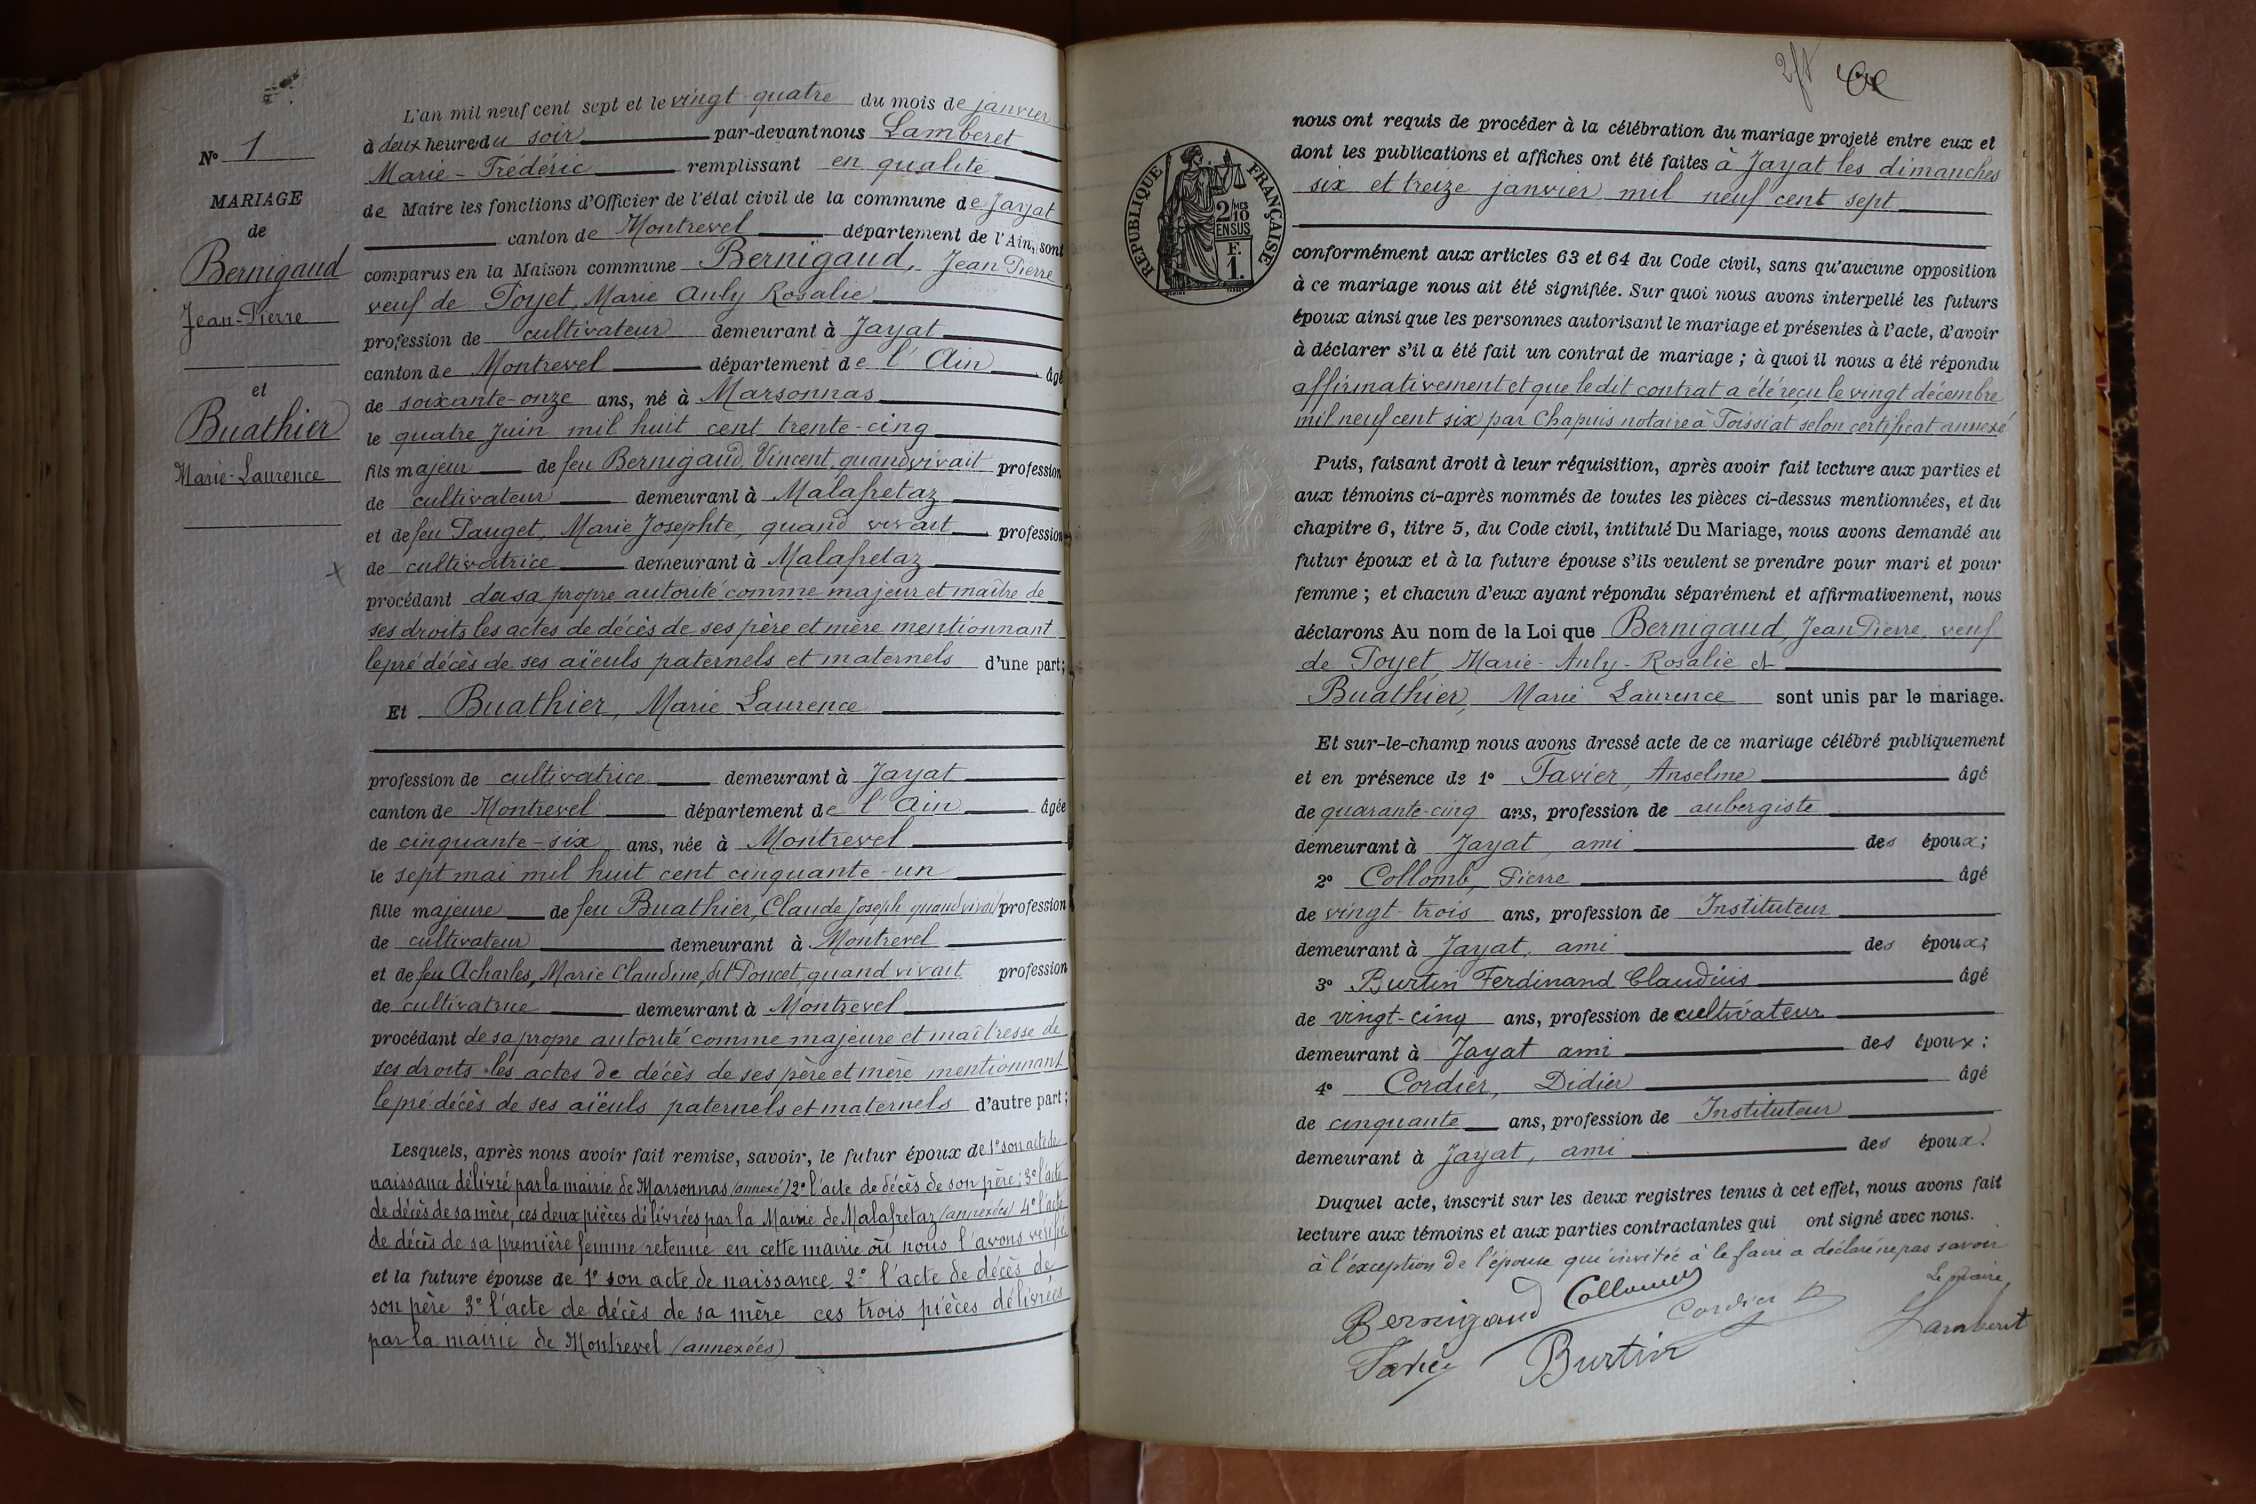 N° 1
MARIAGE
de
Bernigaud
Jean-Pierre
et
Buathier
Marie-Laurence
L'an mil neuf cent sept et le vingt-quatre du mois de janvier
à deux heure du soir par-devant nous Lamberet
Marie-Frédéric remplissant en qualité
de Maire les fonctions d'Officier de l'état civil de la commune de Jayat
canton de Montrevel département de l'Ain, sont
comparus en la Maison commune Bernigaud, Jean Pierre
veuf de Poyet, Marie Anly Rosalie
profession de cultivateur demeurant à Jayat
canton de Montrevel département de l'Ain âgé
de soixante-onze ans, né à Marsonnas
le quatre Juin mil huit cent trente-cinq
fils majeur de feu Bernigaud, Vincent, quand vivait profession
de cultivateur demeurant à Malafretaz
et de feu Pauget, Marie Josephte, quand vivait profession
de cultivatrice demeurant à Malafretaz
procédant de sa propre autorité comme majeur et maître de
ses droits les actes de décès de ses père et mère mentionnant
le pré décès de ses aïeuls paternels et maternels d'une part;
Et Buathier, Marie Laurence
profession de cultivatrice demeurant à Jayat
canton de Montrevel département de l'Ain âgée
de cinquante-six ans, née à Montrevel
le sept mai mil huit cent cinquante-un
fille majeure de feu Buathier, Claude Joseph quand vivait profession
de cultivateur demeurant à Montrevel
et de feu Acharles, Marie Claudine, dit Poncet, quand vivait profession
de cultivatrice demeurant à Montrevel
procédant de sa propre autorité comme majeure et maîtresse de
ses droits les actes de décès de ses père et mère mentionnant
le pré-décès de ses aïeuls paternels et maternels d'autre part;
Lesquels, après nous avoir fait remise, savoir, le futur époux de 1° son acte de
naissance délivré par la mairie de Marsonnas (annexé) 2° l'acte de décès de son père; 3° l'acte
de décès de sa mère, ces deux pièces délivrées par la Mairie de Malafretaz (annexées) 4° l'acte
de décès de sa première femme retenue en cette mairie où nous l'avons vérifié
et la future épouse de 1° son acte de naissance 2° l'acte de décès de
son père 3° l'acte de décès de sa mère ces trois pièces délivrées
par la mairie de Montrevel (annexées)
RÉPUBLIQUE FRANÇAISE
2/10 MES
EN SUS
F.
1.
nous ont requis de procéder à la célébration du mariage projeté entre eux et
dont les publications et affiches ont été faites à Jayat les dimanches
six et treize janvier mil neuf cent sept
conformément aux articles 63 et 64 du Code civil, sans qu'aucune opposition
à ce mariage nous ait été signifiée. Sur quoi nous avons interpellé les futurs
époux ainsi que les personnes autorisant le mariage et présentes à l'acte, d'avoir
à déclarer s'il a été fait un contrat de mariage; à quoi il nous a été répondu
affirmativement et que le dit contrat a été reçu le vingt décembre
mil neuf cent six par Chapuis notaire à Foissiat selon certificat annexé
Puis, faisant droit à leur réquisition, après avoir fait lecture aux parties et
aux témoins ci-après nommés de toutes les pièces ci-dessus mentionnées, et du
chapitre 6, titre 5, du Code civil, intitulé Du Mariage, nous avons demandé au
futur époux et à la future épouse s'ils veulent se prendre pour mari et pour
femme; et chacun d'eux ayant répondu séparément et affirmativement, nous
déclarons Au nom de la Loi que Bernigaud, Jean Pierre, veuf
de Poyet, Marie-Anly-Rosalie et
Buathier, Marie Laurence sont unis par le mariage.
Et sur-le-champ nous avons dressé acte de ce mariage célébré publiquement
et en présence de 1° Favier, Anselme âgé
de quarante-cinq ans, profession de aubergiste
demeurant à Jayat, ami des époux;
2° Collomb, Pierre âgé
de vingt-trois ans, profession de Instituteur
demeurant à Jayat, ami des époux;
3° Burtin Ferdinand Claudius âgé
de vingt-cinq ans, profession de cultivateur
demeurant à Jayat ami des époux;
4° Cordier, Didier âgé
de cinquante ans, profession de Instituteur
demeurant à Jayat, ami des époux.
Duquel acte, inscrit sur les deux registres tenus à cet effet, nous avons fait
lecture aux témoins et aux parties contractantes qui ont signé avec nous.
à l'exception de l'épouse qui invitée à le faire a déclaré ne pas savoir
Le Maire,
Bernigaud Collomb Cordier D Lamberet
Favier Burtin